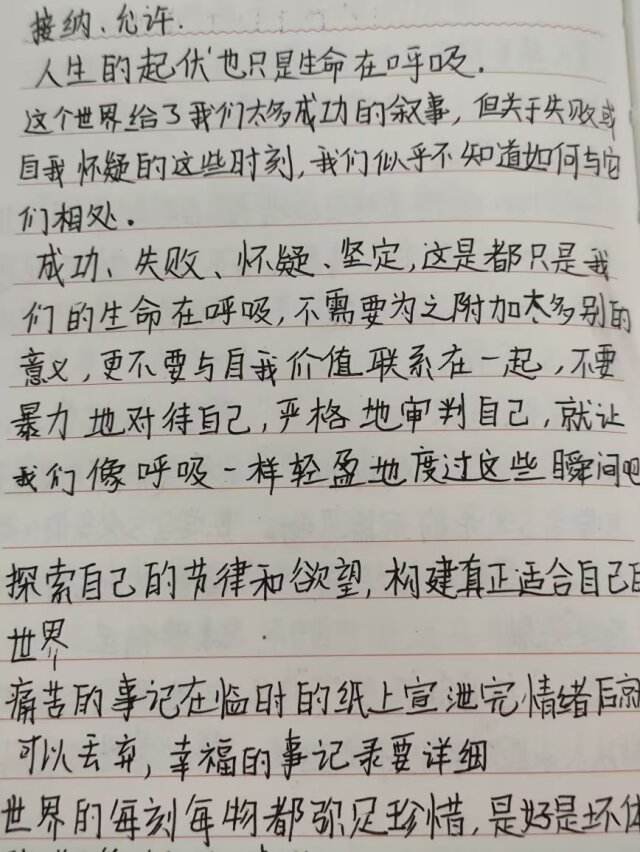 接纳、允许.
人生的起伏也只是生命在呼吸.
这个世界给了我们太多成功的叙事，但关于失败或
自我怀疑的这些时刻,我们似乎不知道如何与它
们相处。
成功、失败、怀疑、坚定,这是都只是我
们的生命在呼吸,不需要为之附加太多别的
意义,更不要与自我价值联系在一起,不要
暴力地对待自己,严格地审判自己,就让
我们像呼吸一样轻盈地度过这些瞬间吧
探索自己的节律和欲望,构建真正适合自己的
世界
痛苦的事记在临时的纸上宣泄完情绪后就
可以丢弃,幸福的事记录要详细
世界的每刻每物都弥足珍惜,是好是坏体